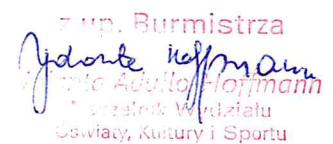 z up. Burmistrza
Jolanta Hoffmann
Adullo-Hoffmann
Wydziału
Oświaty, Kultury i Sportu